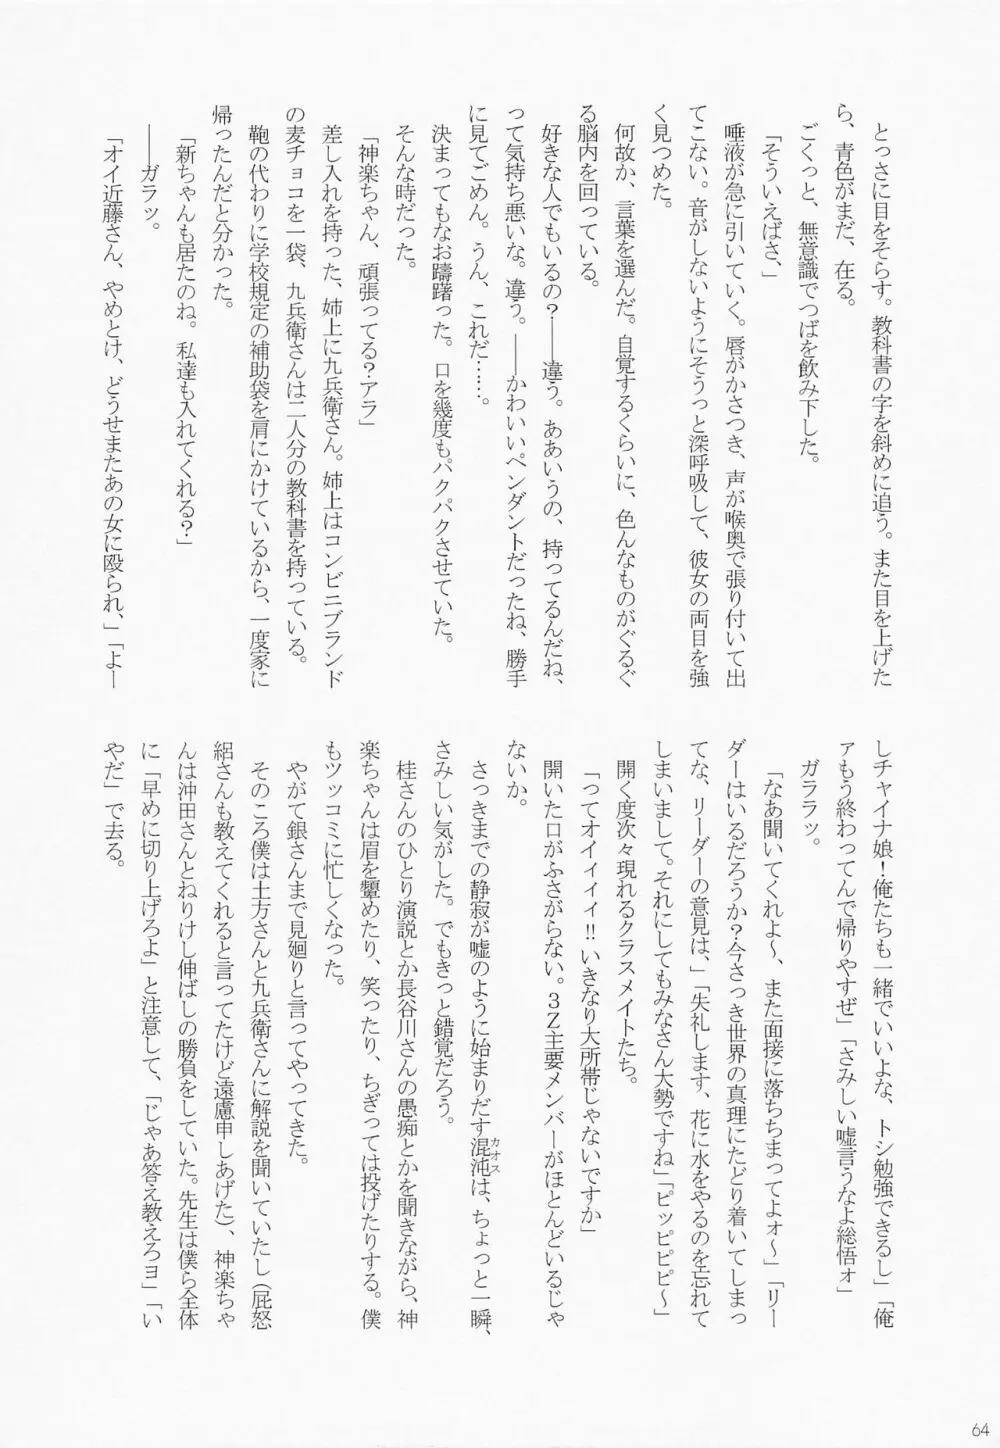 とっさに目をそらす。教科書の字を斜めに追う。また目を上げた
ら、青色がまだ、在る。
ごくっと、無意識でつばを飲み下した。
「そういえばさ、」
唾液が急に引いていく。唇がかさつき、声が喉奥で張り付いて出
てこない。音がしないようにそうっと深呼吸して、彼女の両目を強
く見つめた。
何故か、言葉を選んだ。自覚するくらいに、色んなものがぐるぐ
る脳内を回っている。
好きな人でもいるの？――違う。ああいうの、持ってるんだね、
って気持ち悪いな。違う。――かわいいペンダントだったね、勝手
に見てごめん。うん、これだ……。
決まってもなお躊躇った。口を幾度もパクパクさせていた。
そんな時だった。
「神楽ちゃん、頑張ってる？アラ」
差し入れを持った、姉上に九兵衛さん。姉上はコンビニブランド
の麦チョコを一袋、九兵衛さんは二人分の教科書を持っている。
鞄の代わりに学校規定の補助袋を肩にかけているから、一度家に
帰ったんだと分かった。
「新ちゃんも居たのね。私達も入れてくれる？」
――ガラッ。
「オイ近藤さん、やめとけ、どうせまたあの女に殴られ、」「よー
しチャイナ娘！俺たちも一緒でいいよな、トシ勉強できるし」「俺
ァもう終わってんで帰りやすぜ」「さみしい嘘言うなよ総悟ォ」
ガララッ。
「なあ聞いてくれよ～、また面接に落ちちまってよォ～」「リー
ダーはいるだろうか？今さっき世界の真理にたどり着いてしまっ
てな、リーダーの意見は、」「失礼します、花に水をやるのを忘れて
しまいまして。それにしてもみなさん大勢ですね」「ピッピピピ～」
開く度次々現れるクラスメイトたち。
「ってオイィィィ!!いきなり大所帯じゃないですか」
開いた口がふさがらない。３Ｚ主要メンバーがほとんどいるじゃ
ないか。
さっきまでの静寂が嘘のように始まりだす混沌カオスは、ちょっと一瞬、
さみしい気がした。でもきっと錯覚だろう。
桂さんのひとり演説とか長谷川さんの愚痴とかを聞きながら、神
楽ちゃんは眉を顰めたり、笑ったり、ちぎっては投げたりする。僕
もツッコミに忙しくなった。
やがて銀さんまで見廻りと言ってやってきた。
そのころ僕は土方さんと九兵衛さんに解説を聞いていたし（屁怒
絽さんも教えてくれると言ってたけど遠慮申しあげた）、神楽ちゃ
んは沖田さんとねりけし伸ばしの勝負をしていた。先生は僕ら全体
に「早めに切り上げろよ」と注意して、「じゃあ答え教えろヨ」「い
やだ」で去る。
64